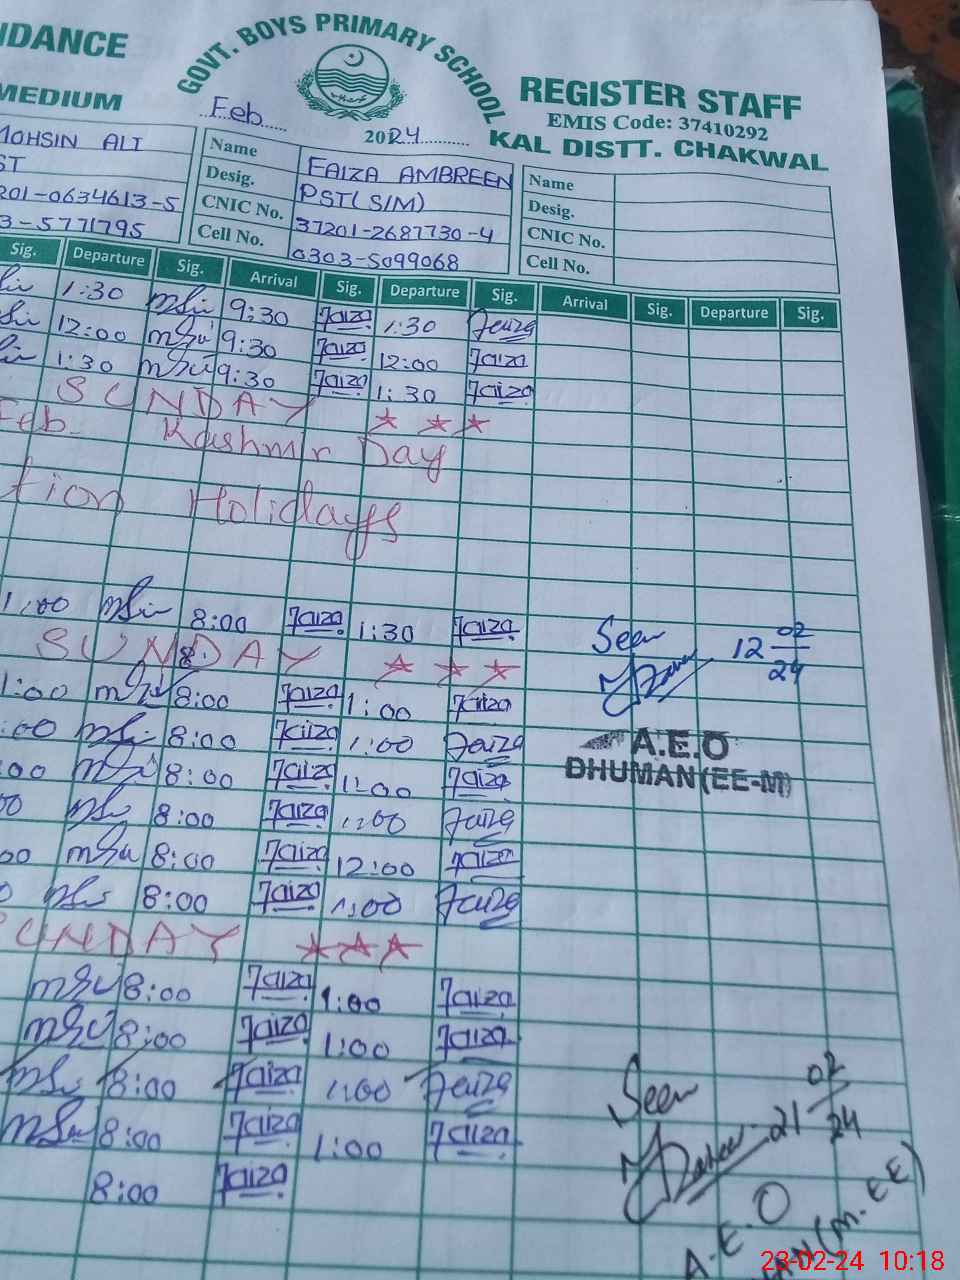 GOVT. BOYS PRIMARY SCHOOL
NDANCE
REGISTER STAFF
MEDIUM
EMIS Code: 37410292
Feb
2024
KAL DISTT. CHAKWAL
MOHSIN ALI
Name FAIZA AMBREEN
Name
ST
Desig. PST(S/M)
Desig.
201-0634613-5
CNIC No. 37201-2687730-4
CNIC No.
3-5771795
Cell No. 0303-5099068
Cell No.
Sig. Departure Sig. Arrival Sig. Departure Sig. Arrival Sig. Departure Sig.
1:30 9:30 Faiza 1:30 Faiza
12:00 9:30 Faiza 12:00 Faiza
1:30 9:30 Faiza 1:30 Faiza
SUNDAY
Feb. Kashmir Day
tion Holidays
1:00 8:00 Faiza 1:30 Faiza
Seen 12 02/24
SUNDAY
1:00 8:00 Faiza 1:00 Faiza
:00 8:00 Faiza 1:00 Faiza
A.E.O
:00 8:00 Faiza 1:00 Faiza
DHUMAN(EE-M)
00 8:00 Faiza 1:00 Faiza
00 8:00 Faiza 12:00 Faiza
0 8:00 Faiza 1:00 Faiza
SUNDAY
8:00 Faiza 1:00 Faiza
8:00 Faiza 1:00 Faiza
8:00 Faiza 1:00 Faiza
Seen 21 02/24
8:00 Faiza 1:00 Faiza
8:00 Faiza
A.E.O
AN(M.EE)
23-02-24 10:18